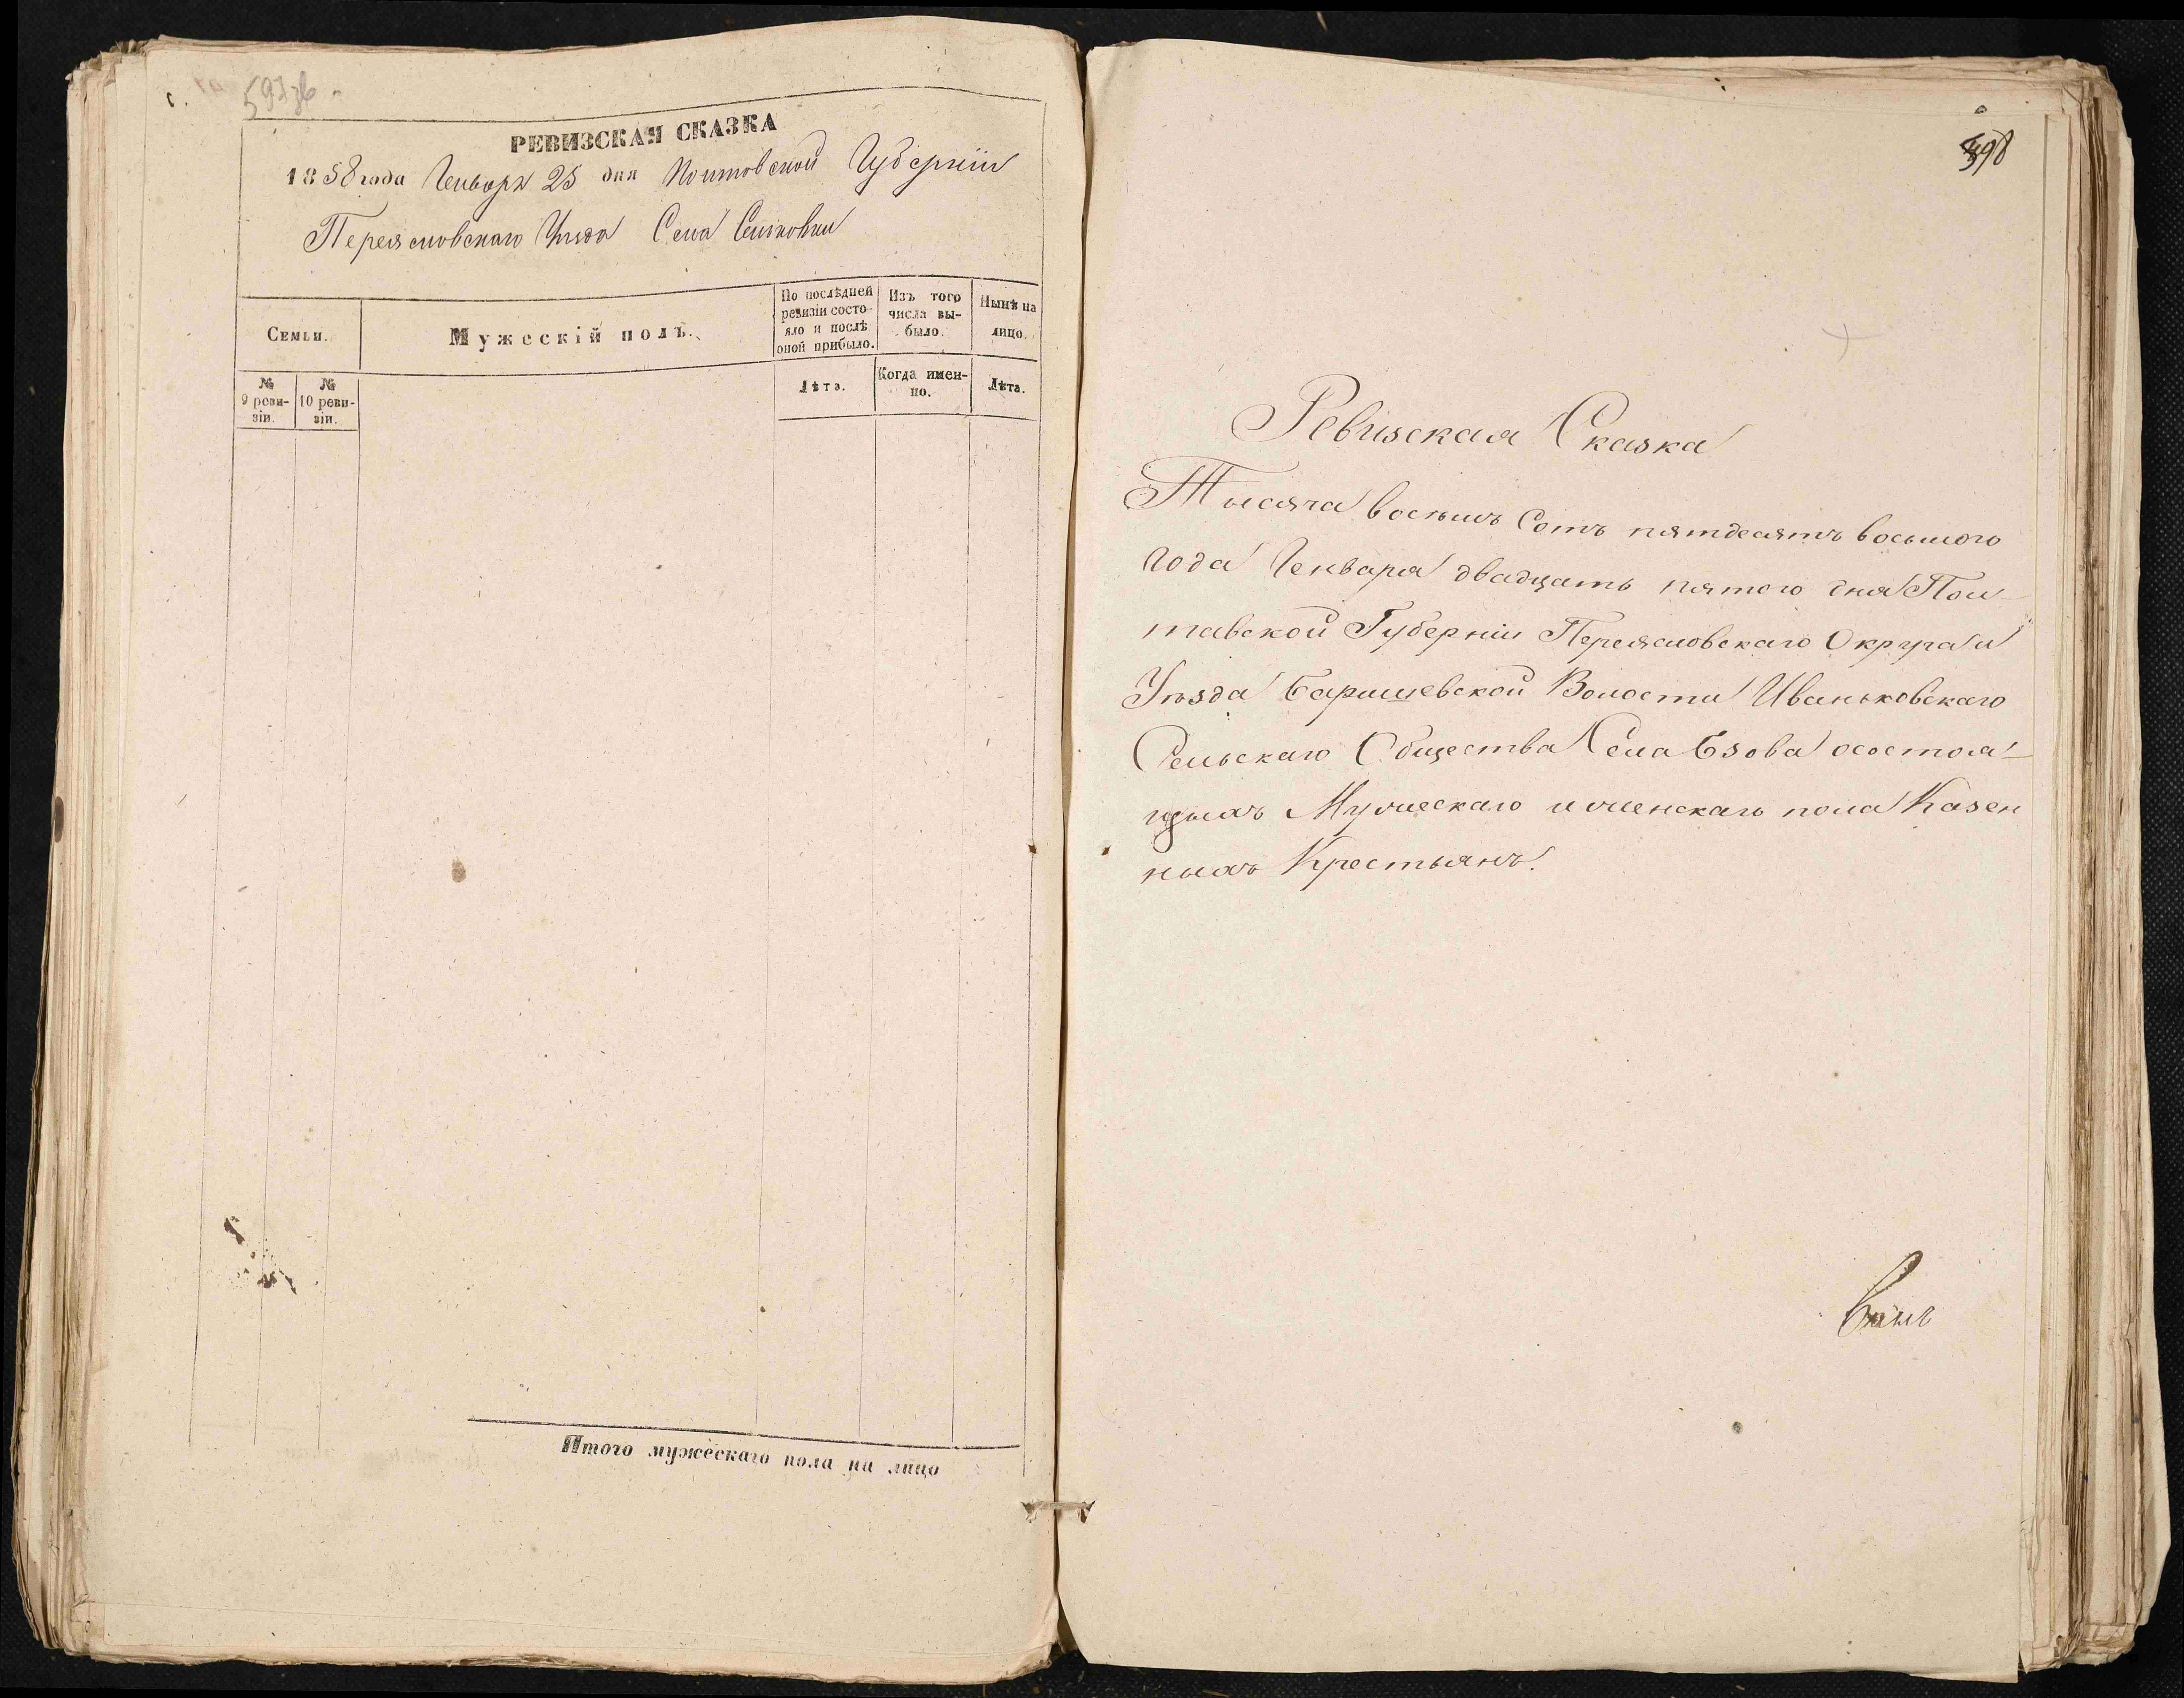 597зв
РЕВИЗСКАЯ СКАЗКА
1858 года Генваря 25 дня Полтавской Губерніи
Переясловскаго Уѣзда Села
Семьи.
Мужескій полъ.
По послѣдней ревизіи состояло и послѣ оной прибыло.
Изъ того числа выбыло.
Нынѣ на лицо.
№ 9 ревизіи.
№ 10 ревизіи.
Лѣта.
Когда именно.
Лѣта.
Итого мужескаго пола на лицо
598
Ревизская Сказка
Тысяча восемь Сотъ пятдесятъ восьмого
года Генваря двадцать пятого дня Пол-
тавской Губерніи Переясловскаго Округа и
Уѣзда Баришевской Волости Иваньковскаго
Сельскаго Общества Села Бзова осостоя-
щихъ Мужескаго и женскаго пола Казен
ныхъ Крестьянъ.